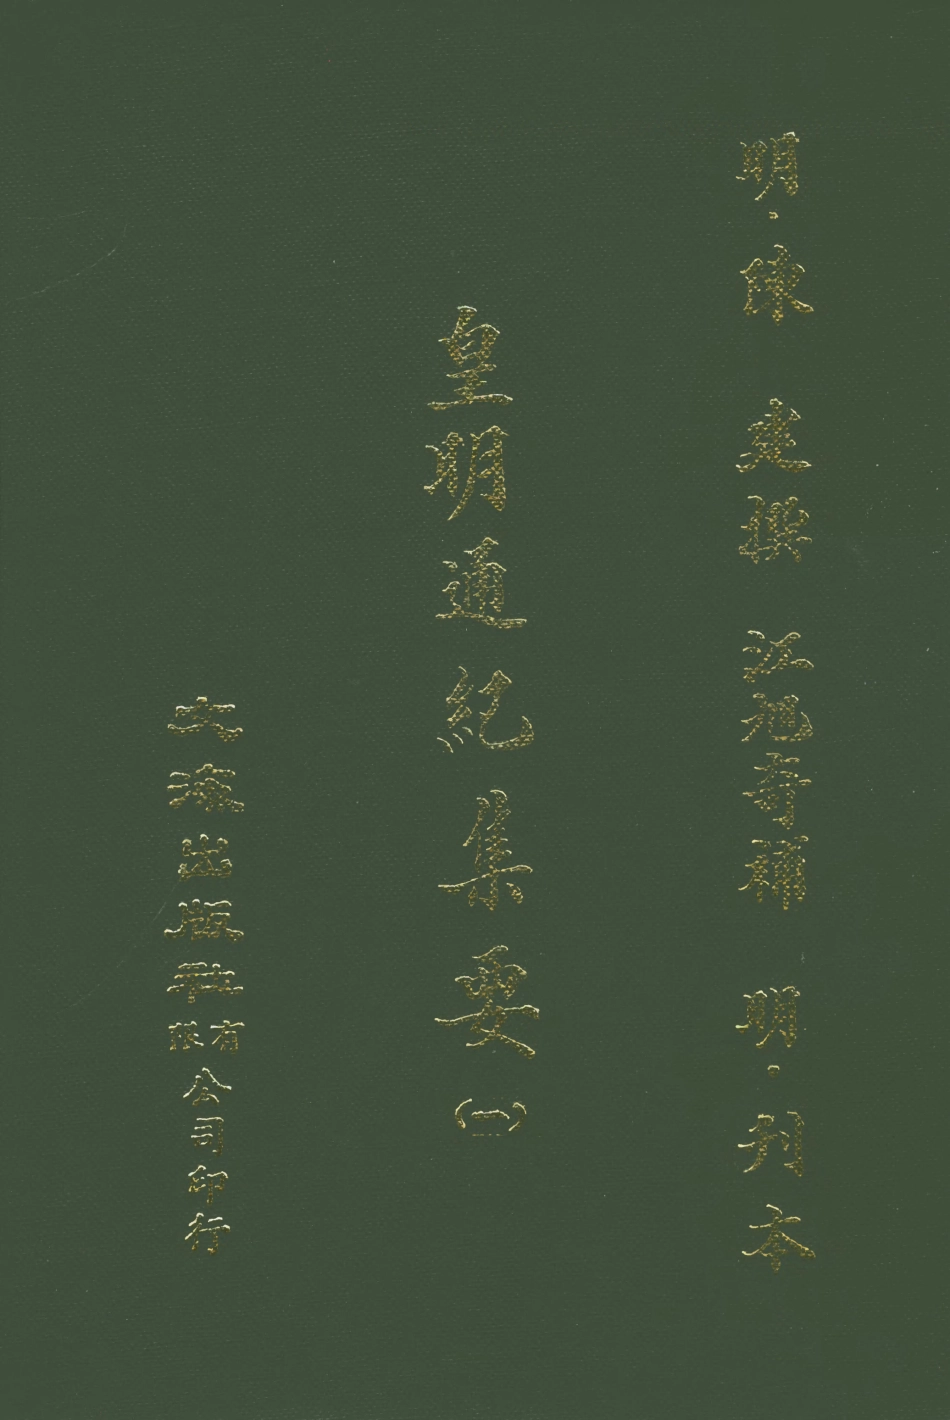 明·陳 建撰 江旭奇補 明·刊本
皇明通紀集要(一)
文海出版社有限公司印行